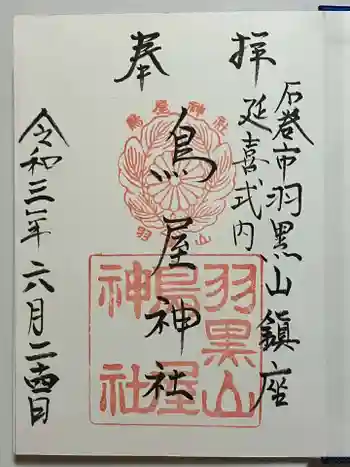 奉拝
石巻市羽黒山鎮座
延喜式内
鳥屋神社
令和三年六月二十四日
鳥屋神社
羽黒山
羽黒山
鳥屋
神社